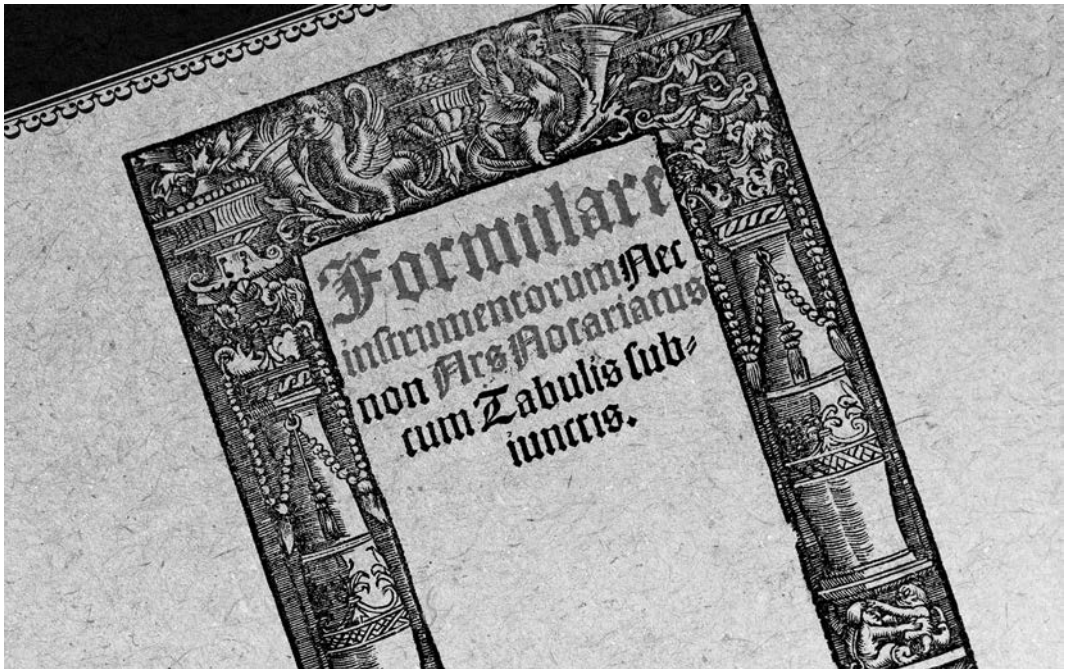 Formulare
inſtrumentorum Nec
non Ars Notariatus
cum Tabulis ſub⸗
iunctis.